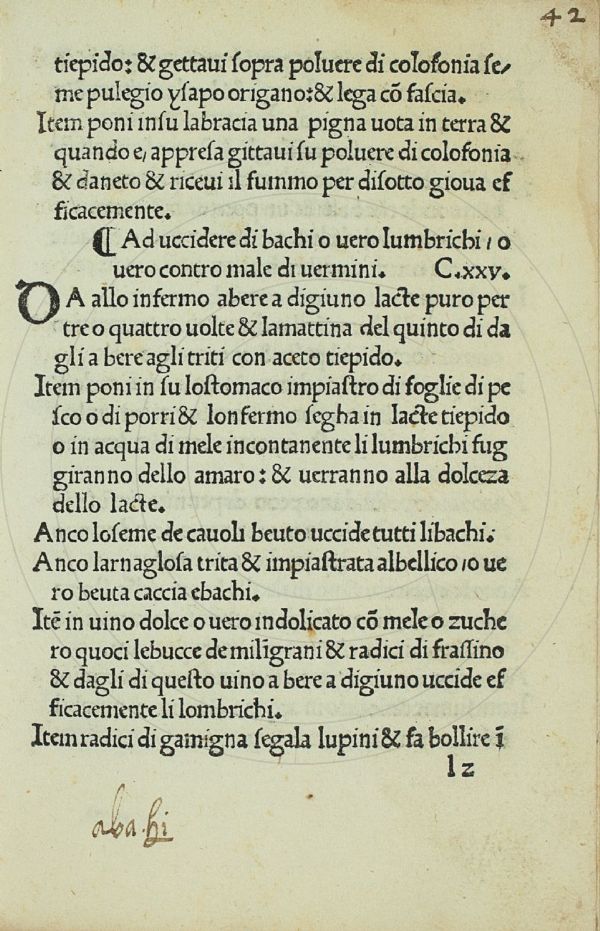 42
tiepido: & gettaui ſopra poluere di colofonia ſe/
me pulegio yſapo origano:& lega cõ faſcia.
Item poni inſu labracia una pigna uota in terra &
quando e, appreſa gittaui ſu poluere di colofonia
& daneto & riceui il fummo per diſotto gioua ef
ficacemente.
¶ Ad uccidere di bachi o uero lumbrichi / o
uero contro male di uermini. C.xxv.
DA allo infermo abere a digiuno lacte puro per
tre o quattro uolte & lamattina del quinto di da
gli a bere agli triti con aceto tiepido.
Item poni in ſu loſtomaco impiaſtro di foglie di pe
ſco o di porri & lonfermo ſegha in lacte tiepido
o in acqua di mele incontanente li lumbrichi fug
giranno dello amaro : & uerranno alla dolceza
dello lacte.
Anco loſeme de cauoli beuto uccide tutti libachi.
Anco larnagloſa trita & impiaſtrata albellico / o ue
ro beuta caccia ebachi.
Itẽ in uino dolce o uero indolicato cõ mele o zuche
ro quoci lebucce de milĩgrani & radici di fraſſino
& dagli di queſto uino a bere a digiuno uccide ef
ficacemente li lombrichi.
Item radici di gamigna ſegala lupini & fa bollire ĩ
l2
aba.hi